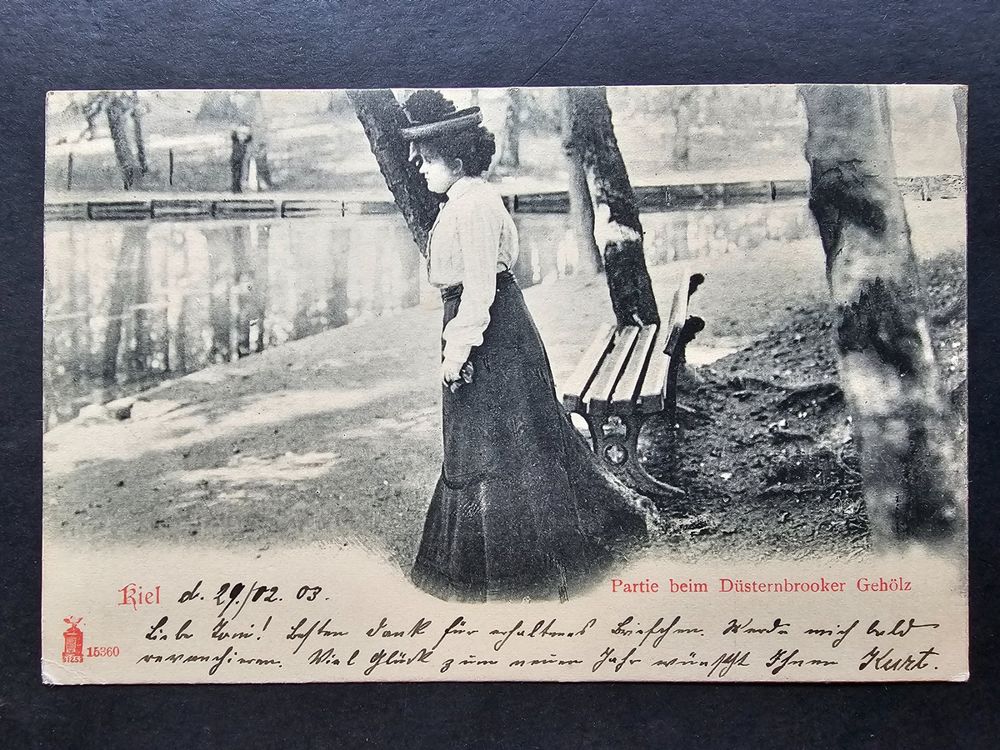 Kiel d. 29./12. 03.
Partie beim Düsternbrooker Gehölz
Liebe Toni! Besten Dank für erhaltenes Briefchen. Werde mich bald
revanchieren. Viel Glück zum neuen Jahr wünscht Ihnen Kurt.
15360